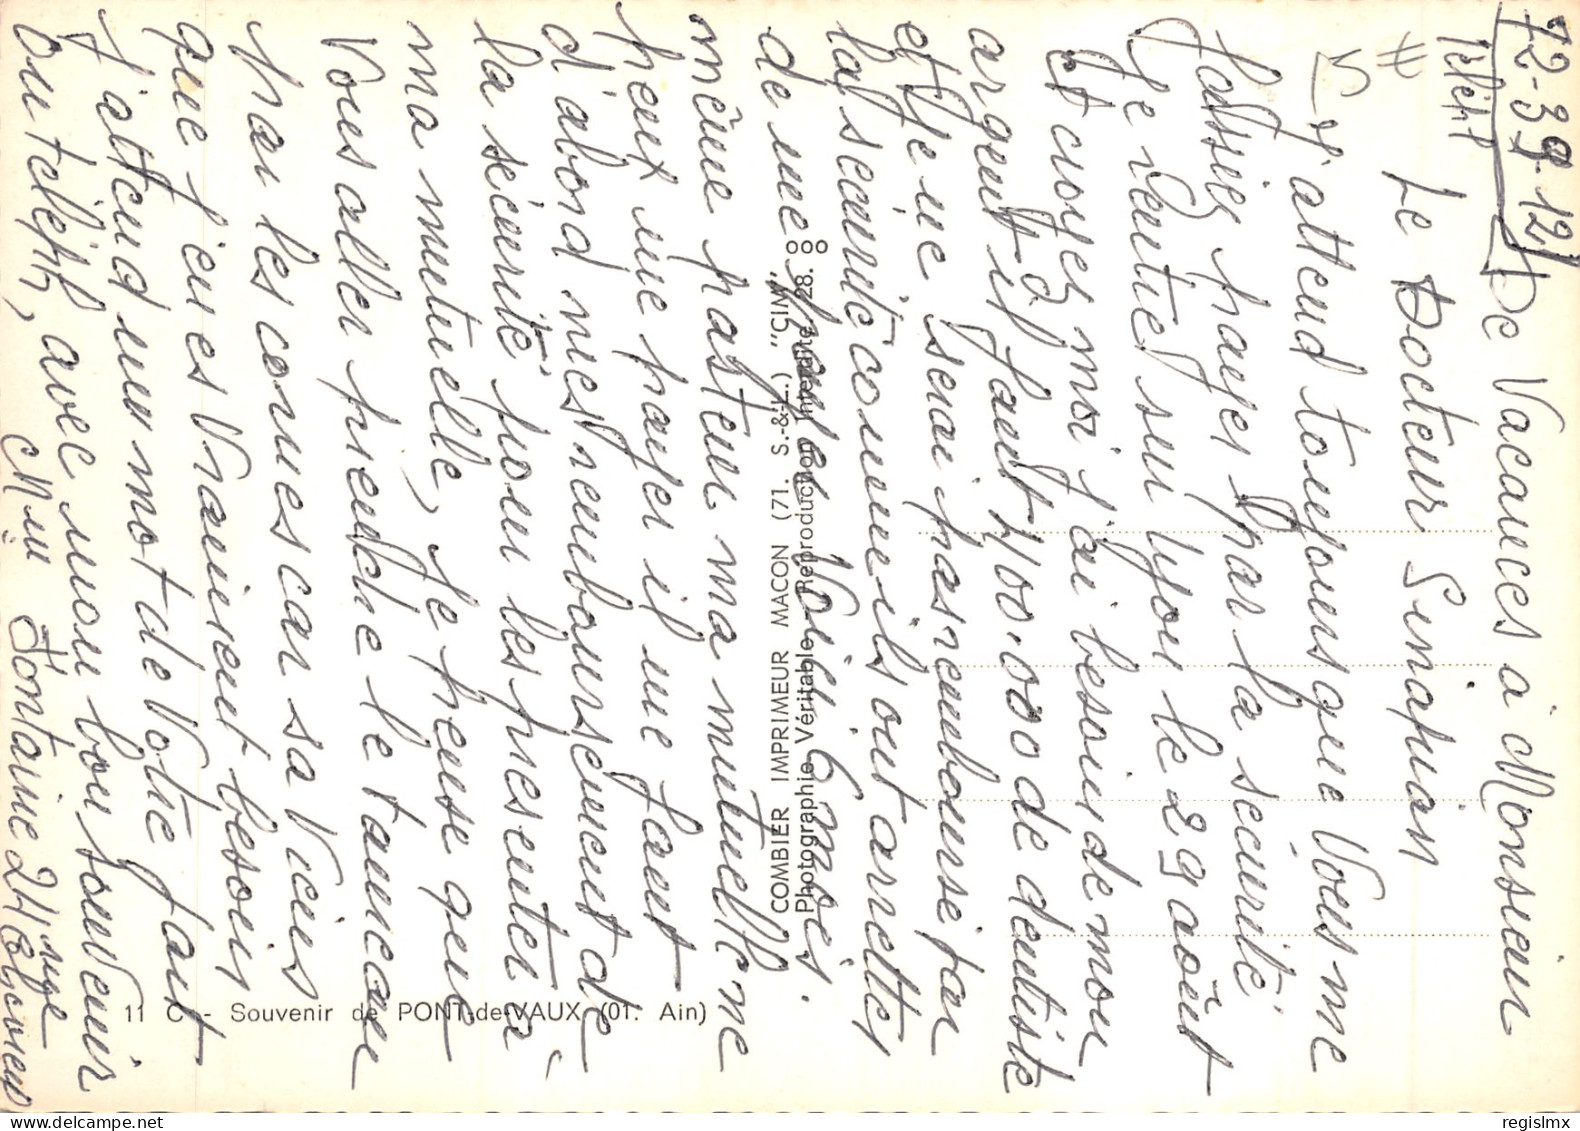 72-39-12
téléph
De Vacances à Monsieur
Le Docteur Sinapian
J'attend toujours que Vous me
fassiez payer par la sécurité
Je rentre sur Lyon le 29 août
et croyez moi j'ai besoin de mon
argent il faut 400.000 de dentiste
et Je ne serai pas rembourse par
la securité comme ils ont arretter
de me payer Voici 6 mois.
même pasteur ma mutuelle ne
peux me payer il me faut
d'abord mes remboursement de
la sécurité pour les presenter à
ma mutuelle, Je pense que
Vous aller prendre le taureau
par les cornes car sa Vieus
que j'en es Vraiment besoin
J'attend un mot de Votre part
ou téléph, avec mon bon souVenir
Mme Fontaine 24 rue
COMBIER IMPRIMEUR MACON (71. S.-&-L.) "CIM"
Photographie Véritable Reproduction Interdite 28.
11 C - Souvenir de PONT-de-VAUX (01. Ain)
regislmx